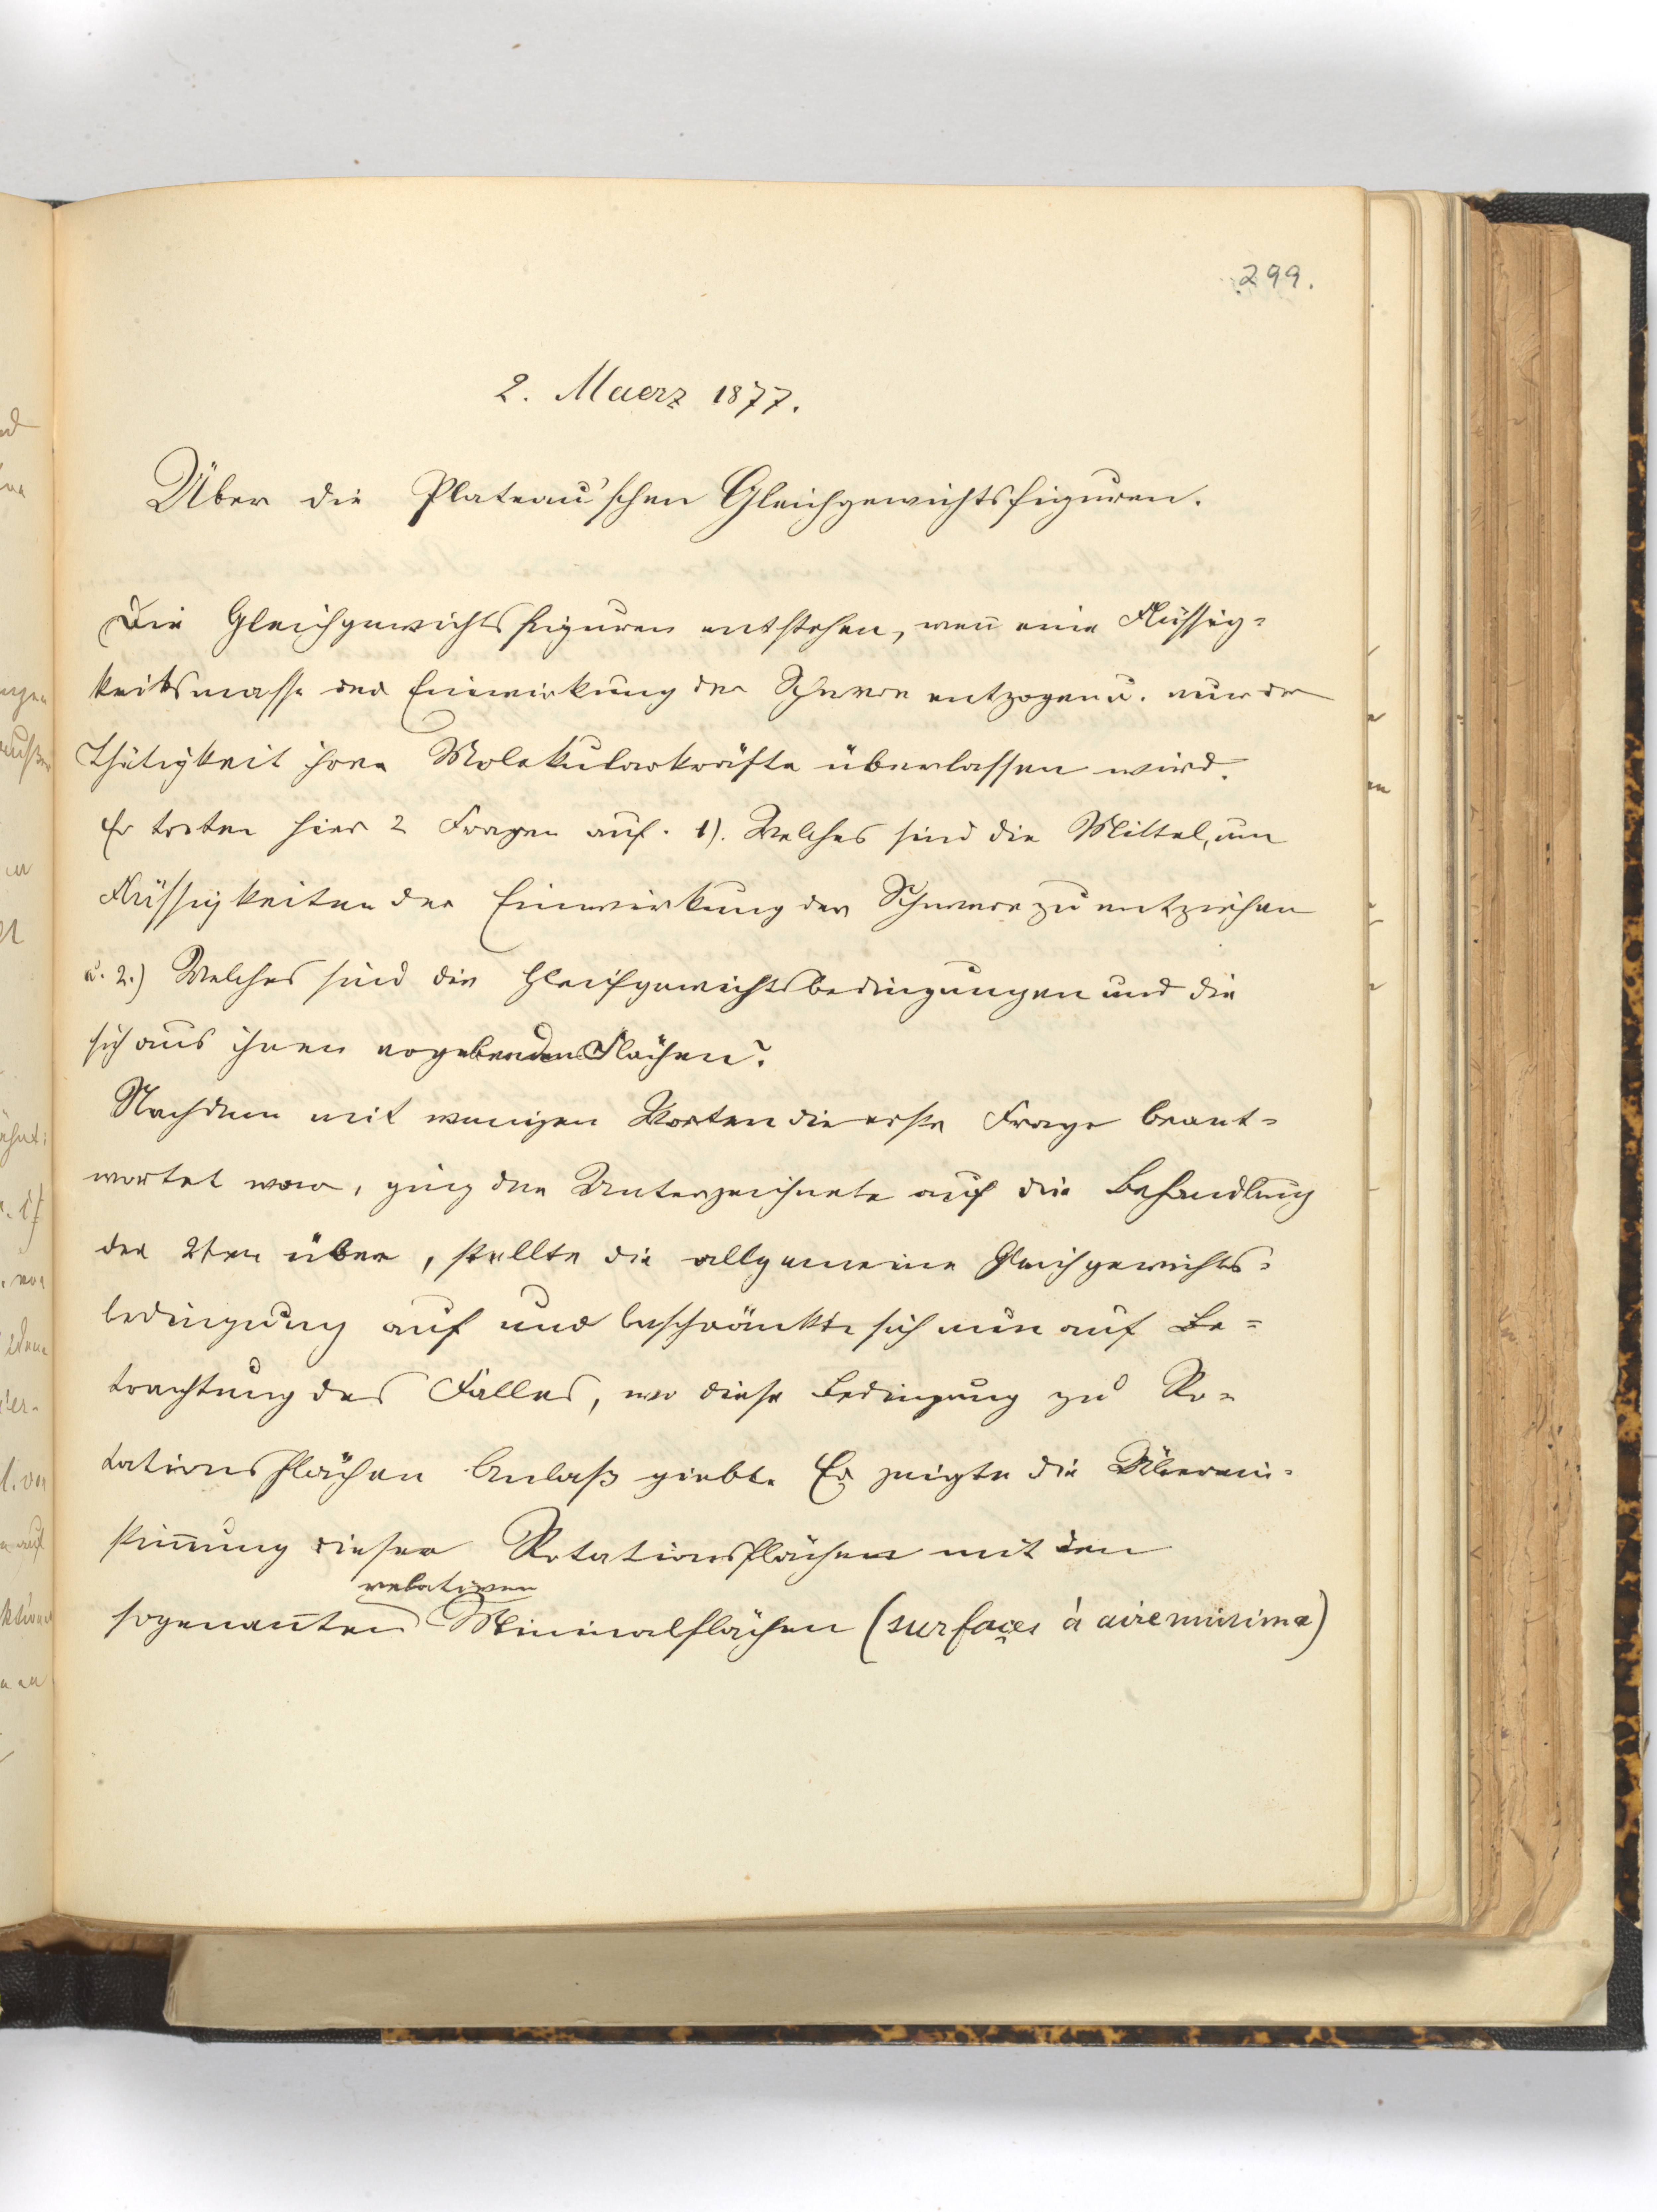 299.
2. Maerz 1877.
Über die Plateau'schen Gleichgewichtsfiguren.
Die Gleichgewichtsfiguren entstehen, weñ eine Flüssig=
keitsmasse der Einwirkung der Schwere entzogen u. nur der
Thätigkeit ihrer Molekularkräfte überlassen wird.
Es treten hier 2 Fragen auf. 1). Welches sind die Mittel, um
Flüssigkeiten der Einwirkung der Schwere zu entziehen
u. 2.) Welches sind die Gleichgewichtsbedingungen und die
sich aus ihnen ergebenden Flächen?
Nachdem mit wenigen Worten die erste Frage beant=
wortet war, ging der Unterzeichnete auf die Behandlung
der 2ten über, stellte die allgemeine Gleichgewichts=
bedingung auf und beschränkte sich nun auf Be=
trachtung des Falles, wo diese Bedingung zu Ro=
tationsflächen Anlaß giebt. Er zeigte die Überein=
stim̄ung dieser Rotationsflächen mit den
relativen
sogenan̄ten Minimalflächen (surfaces à aire minima)